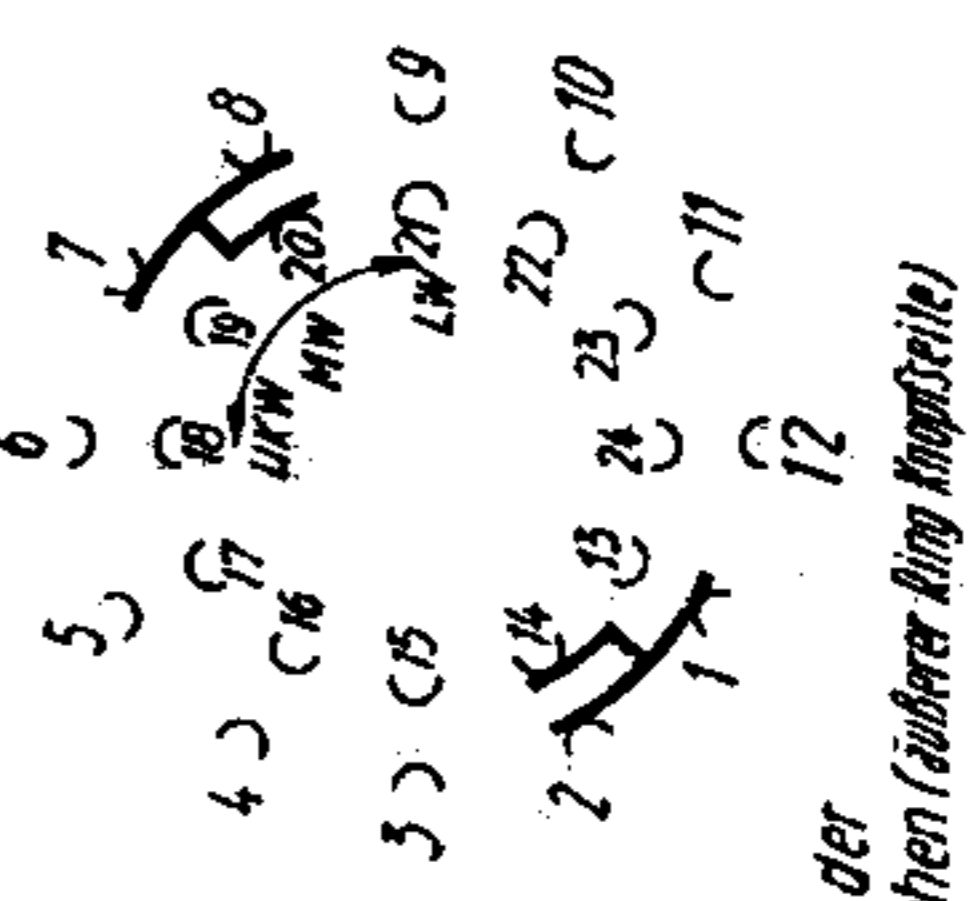 1
2
3
4
5
6
7
8
9
10
11
12
13
14
15
16
17
18
19
20
21
22
23
24
UKW
MW
LW
der
hen (äußerer Ring Knopfseite)